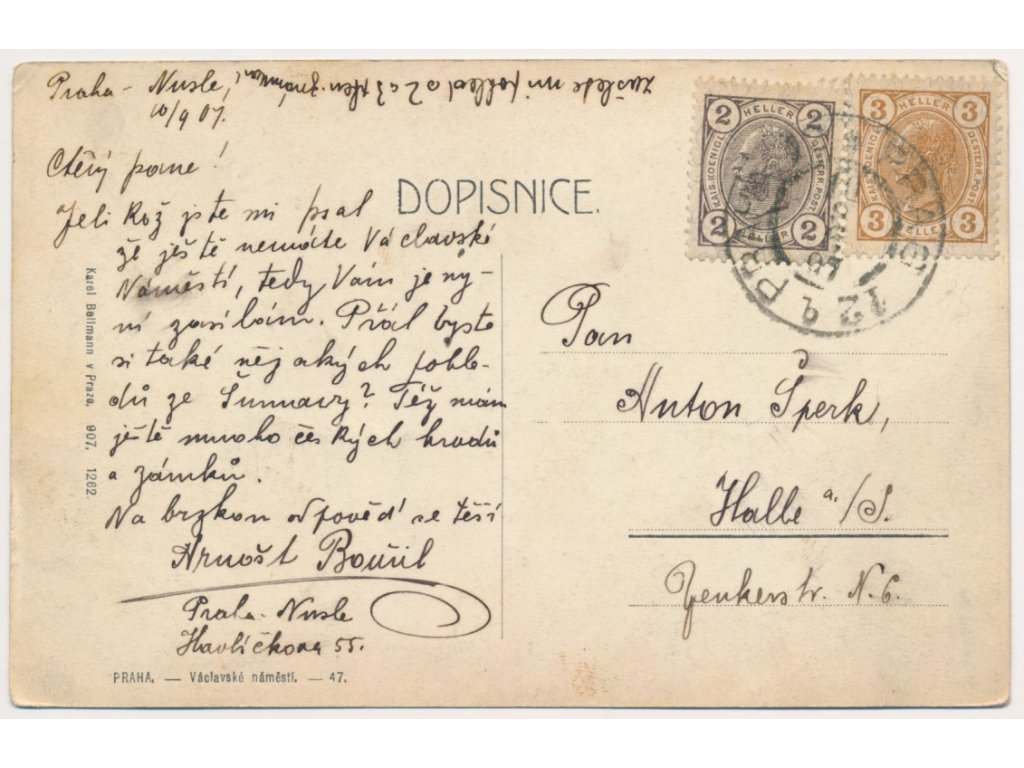 Praha - Nusle,
10/9 07.
Ctěný pane!
Jeli kož jste mi psal
že ještě nemáte Václavské
Náměstí, tedy Vám je ny-
ní zasílám. Přál byste
si také nějakých pohle-
dů ze Šumavy? Též mám
ještě mnoho českých hradů
a zámků.
Na brzkou odpověď se těší
Arnošt Bouřil
Praha-Nusle
Havlíčkova 55.
zašlete mi pohled a 2 a 3
DOPISNICE.
Karel Bellmann v Praze. 907. 1262.
PRAHA. — Václavské náměstí. — 47.
2 HELLER 2
KAIS. KOENIGL. OESTERR. POST
2 HELLER 2
3 HELLER 3
KAIS. KOENIGL. OESTERR. POST
3 HELLER 3
Pan
Anton Šperk,
Halle a./S.
Zenkerstr. N. 6.